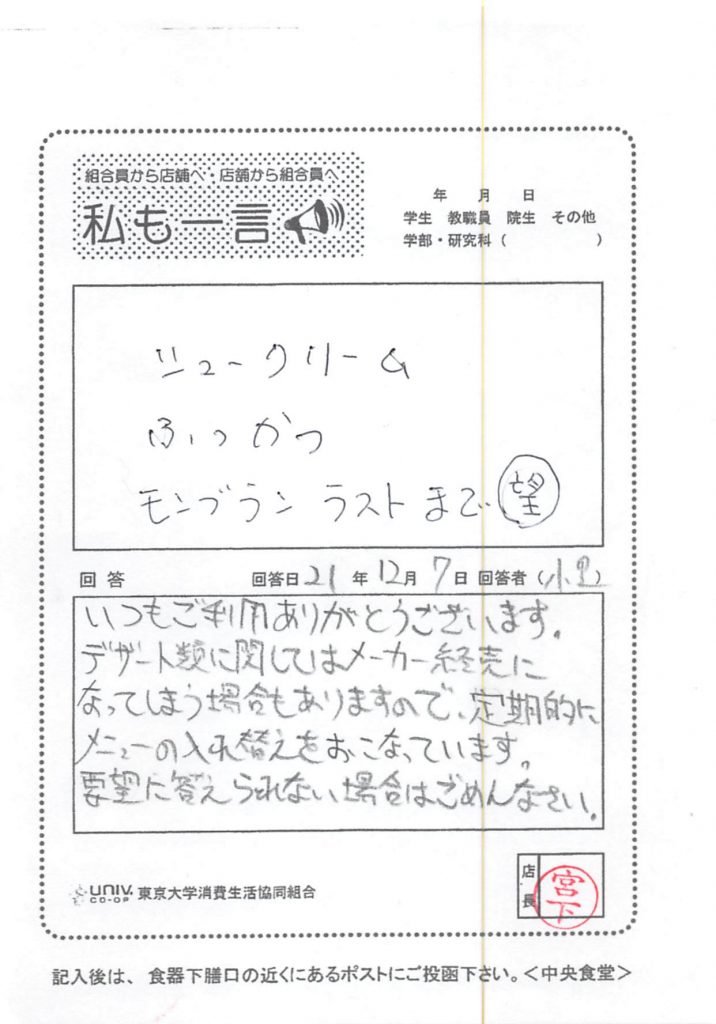 組合員から店舗へ・店舗から組合員へ
私も一言
年 月 日
学生 教職員 院生 その他
学部・研究科 ( )
シュークリーム
ふっかつ
モンブラン ラストまで 望
回答 回答日 21年 12月 7日 回答者 (小里)
いつもご利用ありがとうございます。
デザート類に関してはメーカー終売に
なってしまう場合もありますので、定期的に
メニューの入れ替えをおこなっています。
要望に答えられない場合はごめんなさい。
UNIV. CO-OP 東京大学消費生活協同組合
店長 宮下
記入後は、食器下膳口の近くにあるポストにご投函下さい。<中央食堂>